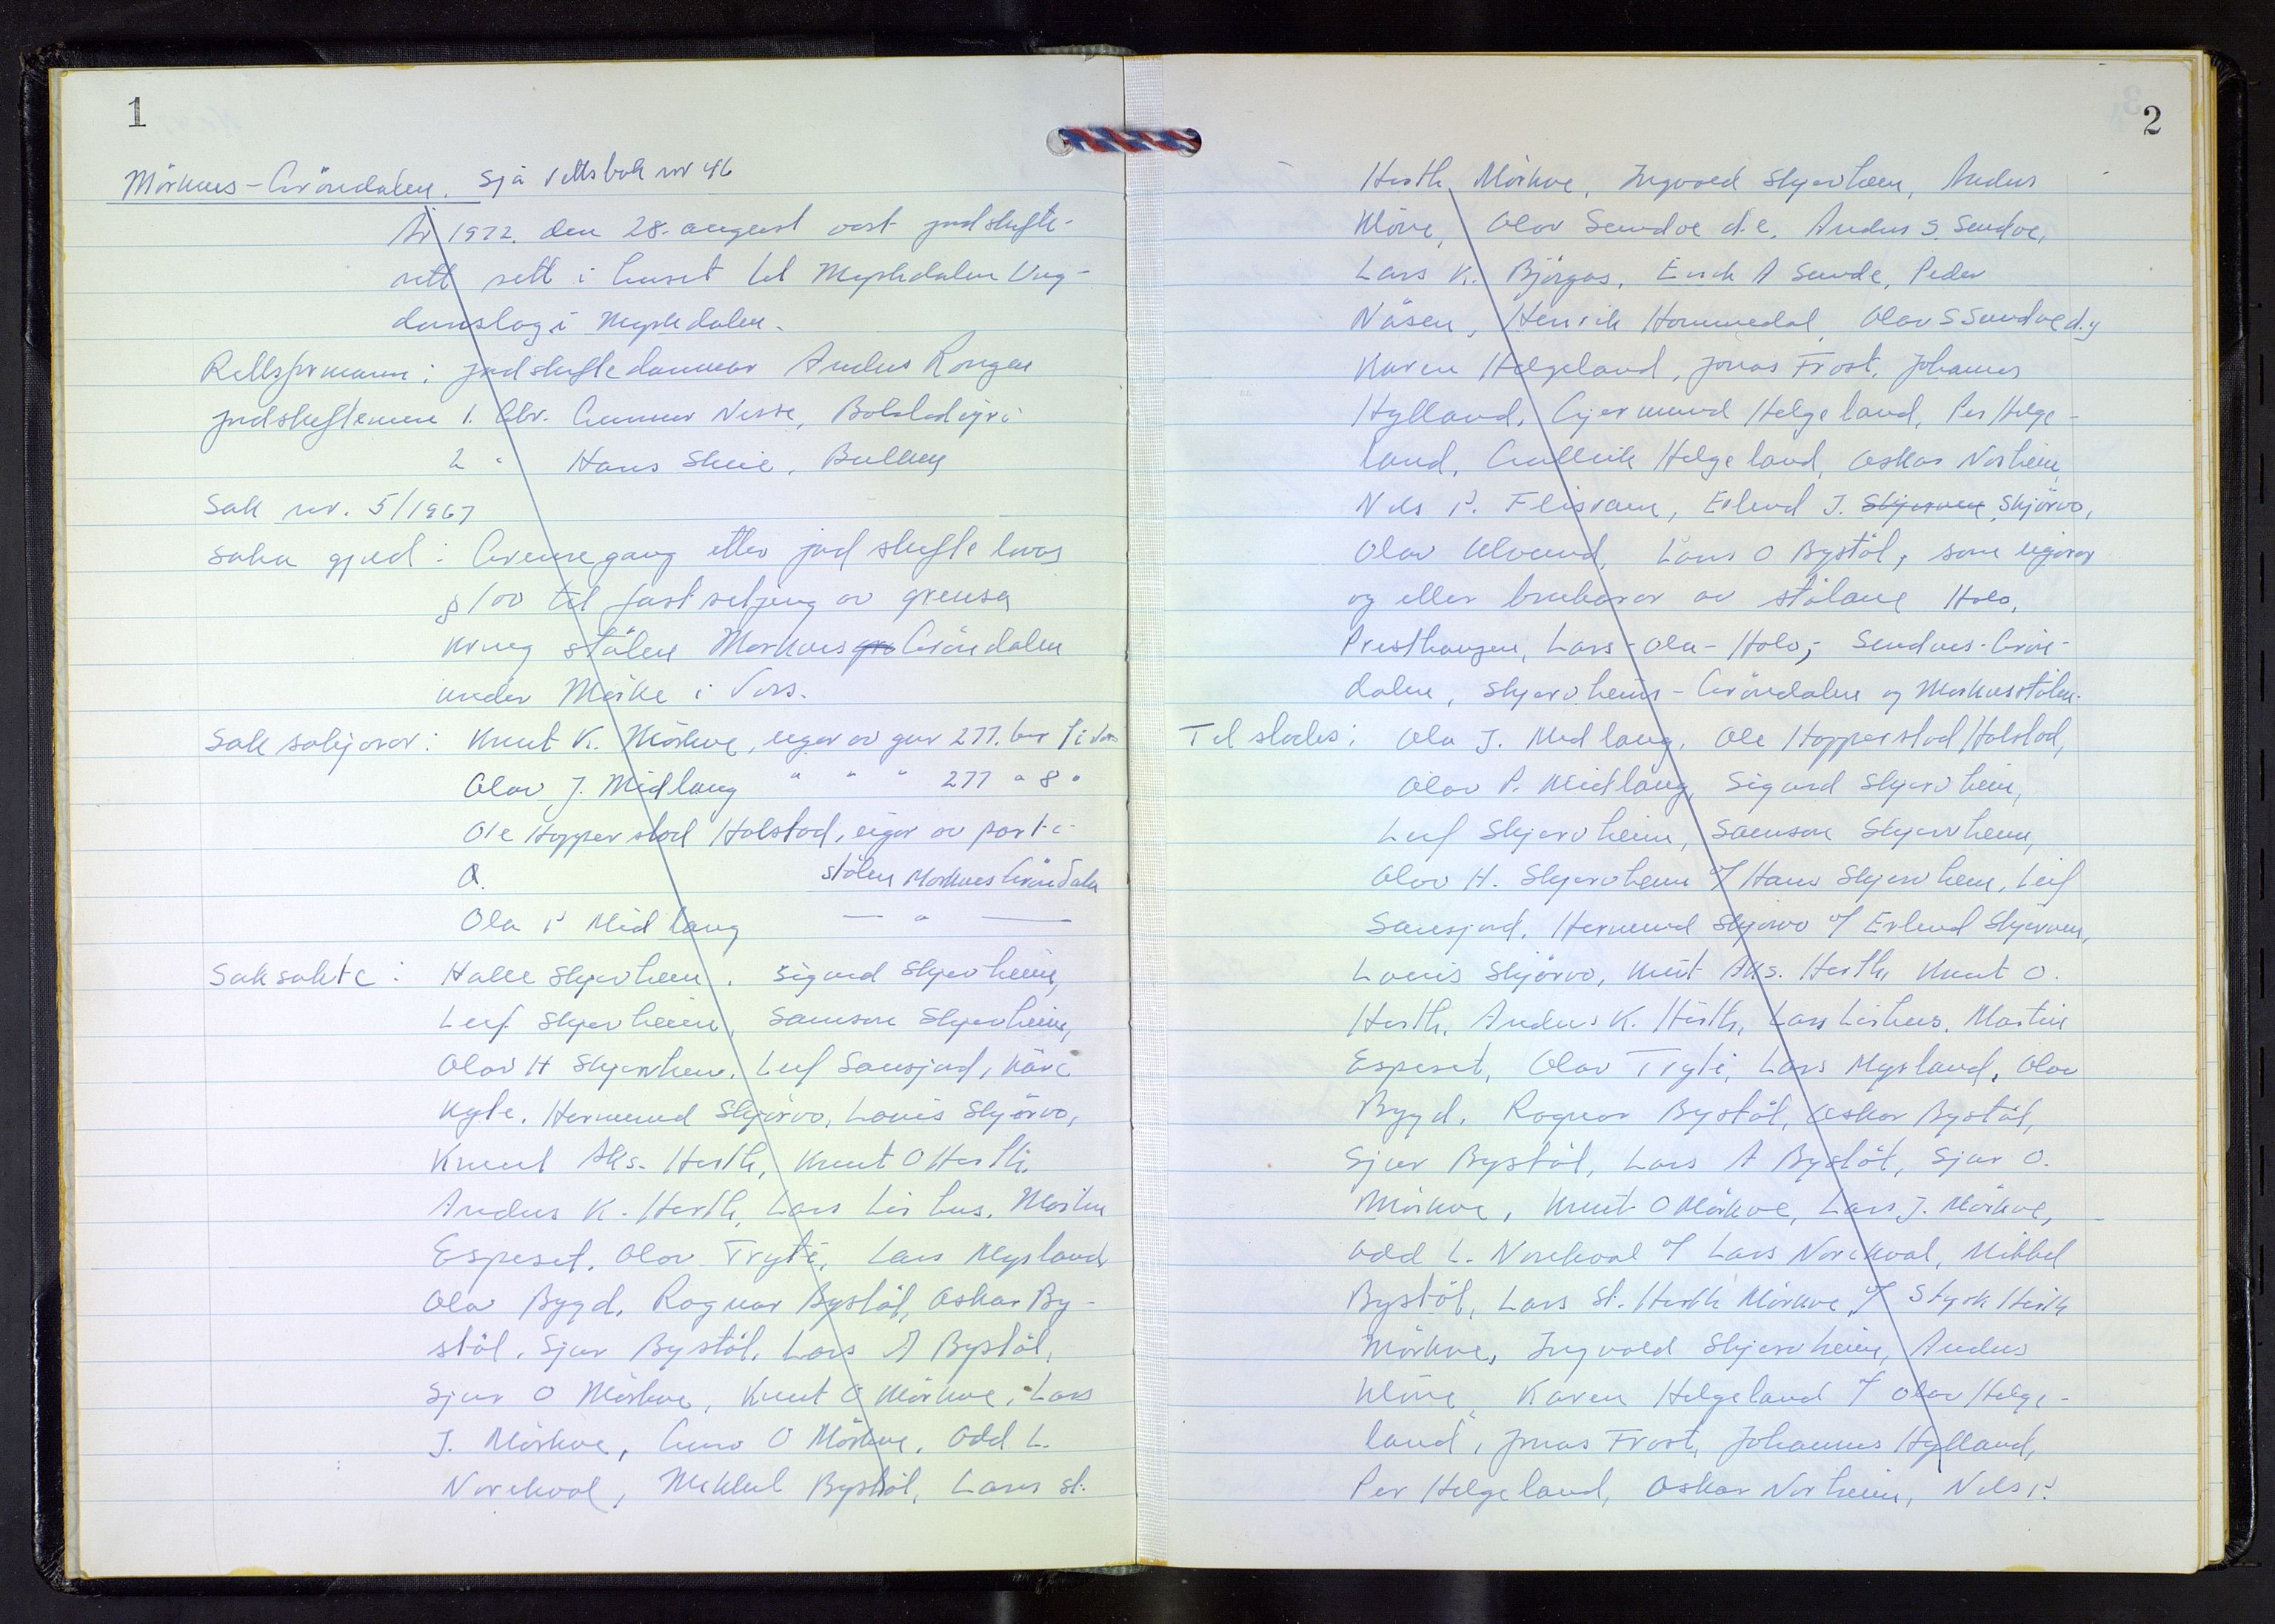 1
Mörkves-Gröndalen. Sjå rettsbok nr 46
År 1972. den 28. august vart jordskifte-
rett sett i huset til Myrkdalen Ung-
domslag i Myrkdalen.
Rettsformann: jordskiftedommar Anders Rongen
jordskiftemenn 1. Gbr. Gunnar Nesse, Bolstadöyri
2 " Hans Skeie, Bulken
Sak nr. 5/1967
Saka gjeld: Grensegang etter jordskiftelovas
§ 100 til fastsetjing av grensa
kring stölen Markves Gröndalen
under Mörke i Voss.
Saksökjarar: Knut K. Mörkve, eigar av gnr 277. bnr 1 i Voss
Olav J. Midlang " " " 277 " 8 "
Ole Hopperstad Halstad, eigar av part i
O. stölen Morkves Gröndalen
Ola P Midlang — " —
Saksökte: Halle Skjervheim. Sigurd Skjervheim,
Leif Skjervheim, Samson Skjervheim,
Olav H Skjervheim. Leif Sausjord, Kåre
Kyte. Hermund Skjörvo, Louis Skjörvo,
Knut Aks. Hirth, Knut O Hirth.
Anders K. Hirth, Lars Lirhus. Martin
Espeset. Olav Tryti, Lars Myrland
Olav Bygd. Ragnar Bystöl, Oskar By-
stöl. Sjur Bystöl. Lars A Bystöl,
Sjur O Mörkve, Knut O Mörkve, Lars
J. Mörkve, O Mörkve. Odd L.
Norekval, Mikkel Bystöl, Lars St.
2
Hirth Mörkve, Ingvald Skjervheim, Anders
Klöve, Olav Sendve d.e. Anders S. Sendve,
Lars K. Björgas, Eirik A Sunde, Peder
Nåsen, Henrik Hommedal, Olav S Sendve d.y
Karen Helgeland, Jonas Frost, Johannes
Hylland, Gjermund Helgeland, Per Helge-
land, Gullik Helgeland, Oskar Norheim
Nils P. Flisram, Erlend J. Skjerven, Skjörvo,
Olav Ulvund, Lars O Bystöl, som eigarar
og eller brukarar av stölane Holo,
Presthaugen, Lars-Ola-Holo,- Sendves-Grön-
dalen, Skjervheims-Gröndalen og Morkvesstölen.
Til stades: Ola J. Midlang, Ole Hopperstad Halstad,
Olav P. Midlang, Sigurd Skjervheim,
Leif Skjervheim, Samson Skjervheim,
Olav H. Skjervheim v/ Hans Skjervheim, Leif
Sausjord, Hermund Skjörvo v/ Erlend Skjerven,
Louis Skjörvo, Knut Aks. Hirth, Knut O.
Hirth. Anders K. Hirth, Lars Lirhus. Martin
Espeset, Olav Tryti, Lars Myrland, Olav
Bygd. Ragnar Bystöl, Oskar Bystöl,
Sjur Bystöl, Lars A Bystöl, Sjur O.
Mörkve, Knut O Mörkve, Lars J. Mörkve,
Odd L. Norekval v/ Lars Norekval, Mikkel
Bystöl, Lars St. Hirth Mörkve v/ Styrk Hirth
Mörkve, Ingvald Skjervheim, Anders
Klöve, Karen Helgeland v/ Olav Helge-
land, Jonas Frost, Johannes Hylland,
Per Helgeland, Oskar Norheim, Nils P.